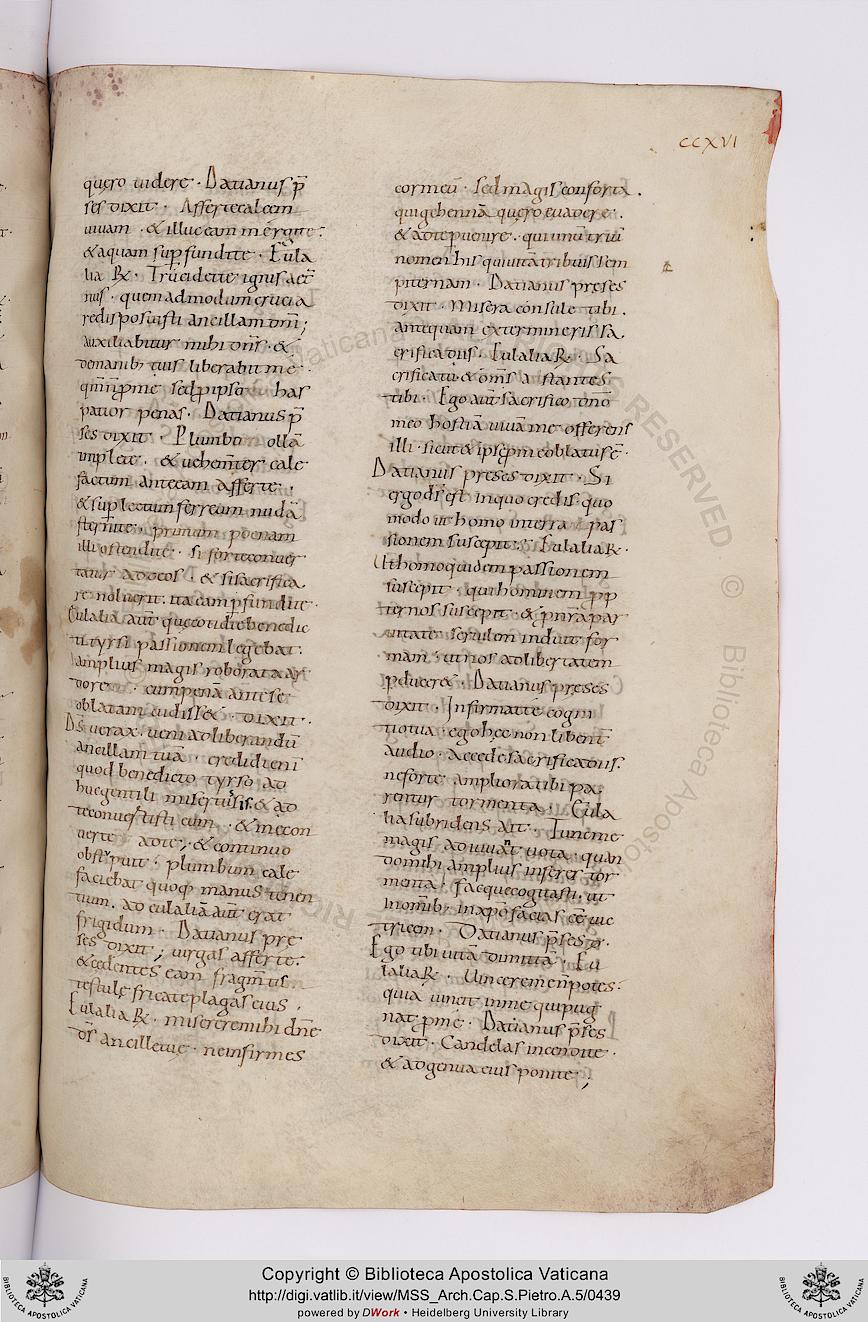 CCXVI
quero uidere · Datianus p̄
ses dixit · Affertecalcem
uiuam · & illuc eam mergite ·
& aquam sup̄fundite · Eula
lia R̄ · Trucidette ignis aet̄
nus · quemadmodum crucia
redisposuisti ancillam dn̄i ;
auxiliabitur mihi dn̄s · &
demanib; tuis liberabit me ·
has
patior penas · Datianus p̄
ses dixit · Plumbo ollā
implete · & uehemt̄er cale
factum anteeam afferte ·
& sup̄ lectum ferreum nudā
sternite · primum poenam
illi ostendite · si forteconuer
tatur addeos · & sisacrifica
re noluerit · ita eam p̄fundite ·
Eulalia aut̄ quecotidiebenedic
ti tyrsi passionem legebat ·
amplius magis roborata ar
dore · cumpenā ante se
oblatam uidiss& · dixit ·
Dś uerax · ueni adliberandū
ancillam tuā · credidi enī
quod benedicto tyrso ad
huc gentili misertus sis · & ad
teconuertisti eum · & mecon
uerte adte ; & continuo
obstipuit · plumbum cale
faciebat quoq; manus tenen
tium · ad eulaliā aut̄ erat
frigidum · Datianus pre
ses dixit ; uirgas afferte ·
& cedentes eam fragmt̄is
testulę fricate plagas eius ·
Eulalia R̄ · misereremihi dn̄e
dś ancilletuę · neinfirmes
cormeū · sed magis conforta ·
quigehennā quero euadere ·
& adte puenire · qui unū triū
nomen his qui uitā tribuis sem
piternam · Datianus preses
dixit · Misera consule tibi ·
antequam extermineris sa
crificadiis · Eulalia R̄ · Sa
crificatu & om̄s astantes
tibi · Ego aut̄ sacrifico dn̄o
meo hostiā uiuā me offerens
illi · sicut & ipse p̄ me oblatus ē ·
Datianus preses dixit · Si
ergo dś est inquo credis · quo
modo ut homo interra pas
sionem suscepit · Eulalia R̄ ·
Uthomo quidem passionem
suscepit · qui hominem pp̄
ter nos suscepit · & p̄ nr̄a par
uitate seruilem induit for
mam · ut nos adlibertatem
p̄ducer& · Datianus preses
dixit · Infirma tē cogni
tio tua · ego hęc non libent̄
audio · accede sacrificadiis ·
neforte ampliora tibi pa
rentur tormenta · Eula
lia subridens ait · Tunc me
magis adiuuat uota · quan
do mihi amplius inseres tor
menta · Fac que cogitasti · ut
inomīb; inxp̄o facias eē uic
tricem · Datianus p̄ses d̄ ·
Ego tibi uitā dimittā · Eu
lalia R̄ · Uincere me n̄ potes ·
quia uincit inme qui pug
nat p̄ me · Datianus p̄ses
dixit · Candelas incendite ·
& adgenua eius ponite ;
Copyright © Biblioteca Apostolica Vaticana
http://digi.vatlib.it/view/MSS_Arch.Cap.S.Pietro.A.5/0439
powered by DWork • Heidelberg University Library